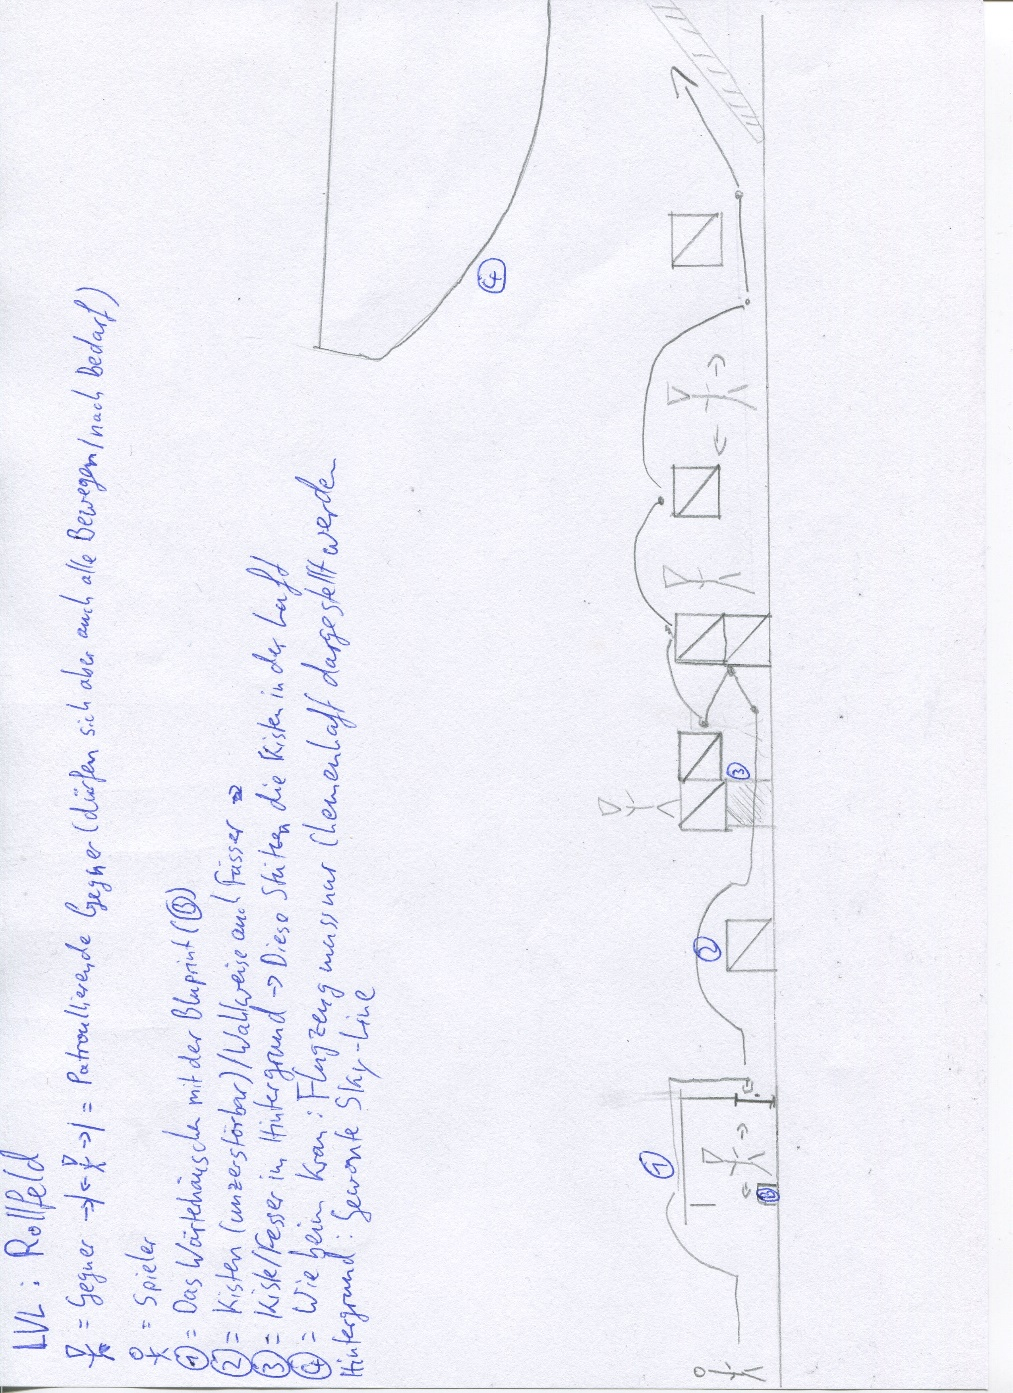 LVL: Rollfeld
= Gegner → = Patroullierende Gegner (dürfen sich aber auch alle Bewegen/nach bedarf)
= Spieler
① = Das Wärtehäuschen mit der Bluprint (B)
② = Kisten (unzerstörbar)/Wahlweise auch Fässer
③ = Kiste/Fesser im Hintergrund → Diese Stützen die Kisten in der Luft
④ = Wie beim Kran: Flugzeug muss nur schemenhaft dargestellt werden
Hintergrund: Gewohnte Sky-Line
①
B
②
③
④